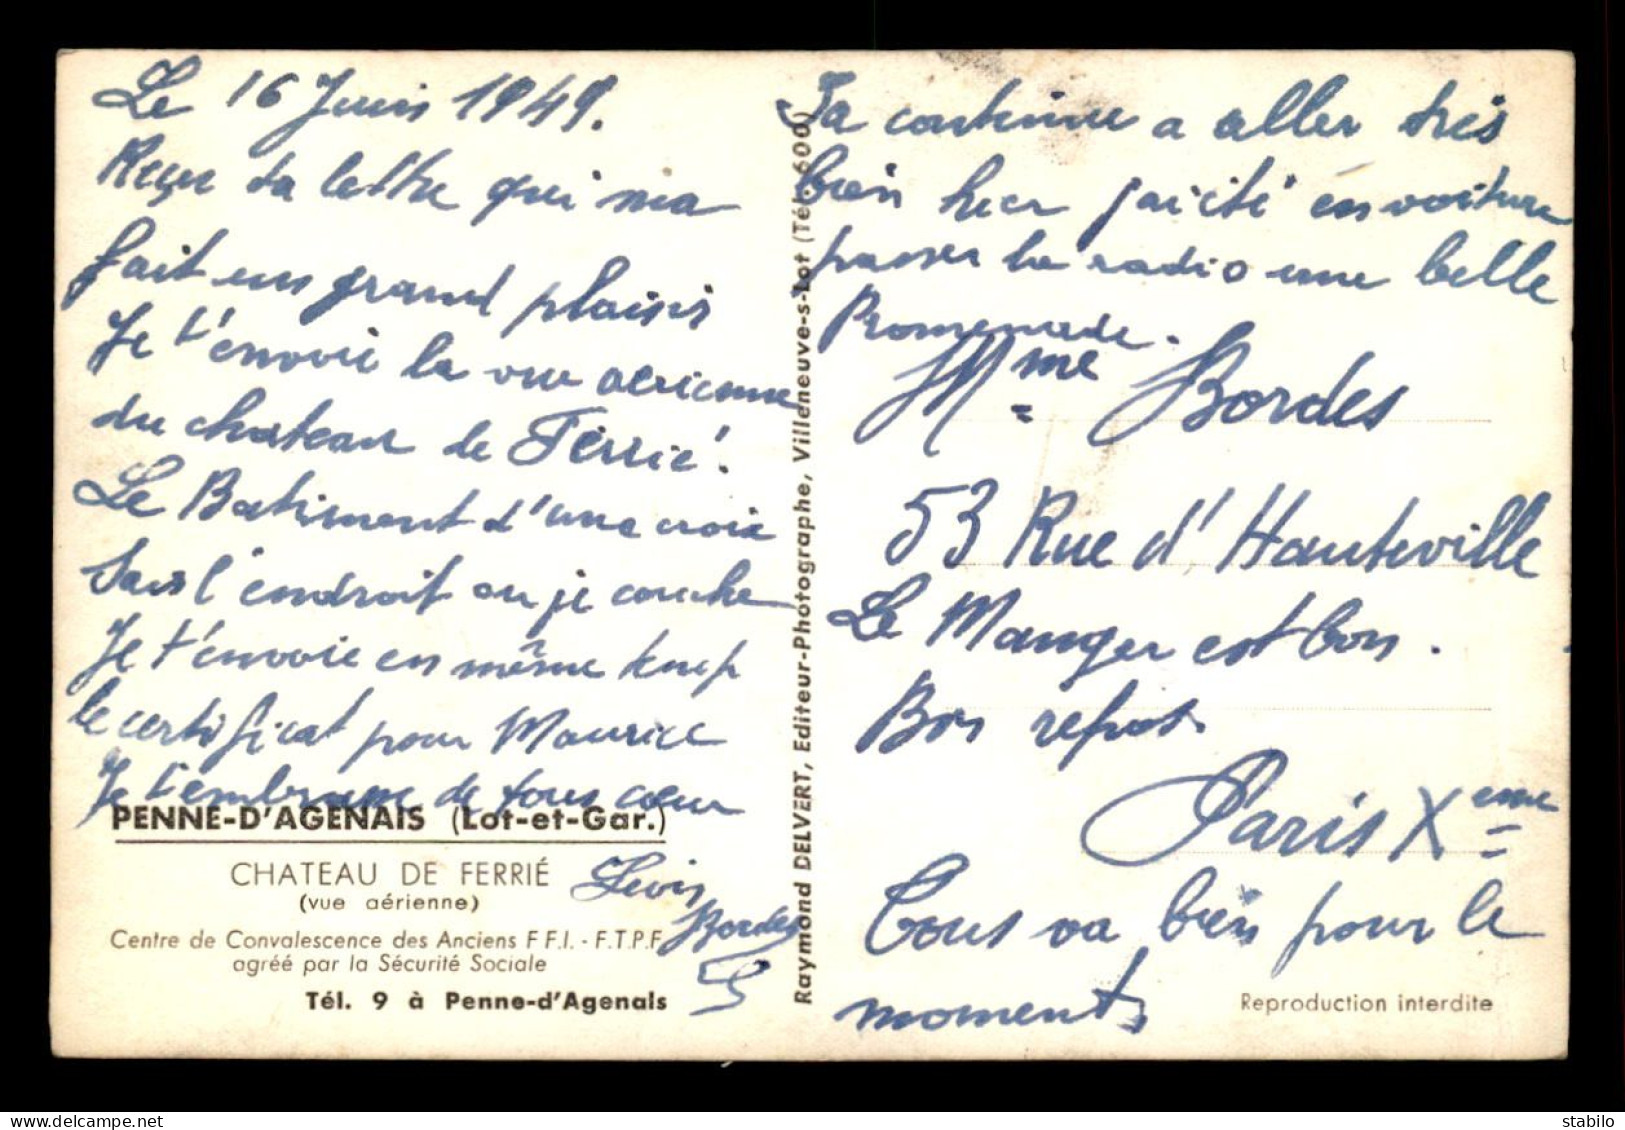 Le 16 Juin 1949.
Reçu ta lettre qui m'a
fait un grand plaisir
Je t'envoie la vue aerienne
du chateau de Ferrié.
Le Batiment d'une croix
sais l'endroit ou je couche
Je t'envoie en même temp
le certificat pour Maurice
Je t'embrasse de tous cœur
PENNE-D'AGENAIS (Lot-et-Gar.)
CHATEAU DE FERRIÉ
(vue aérienne)
Centre de Convalescence des Anciens F F.I. - F.T.P.F.
agréé par la Sécurité Sociale
Tél. 9 à Penne-d'Agenais
Bordes
Raymond DELVERT, Editeur-Photographe, Villeneuve-s-Lot (Tél. 600)
Sa continue a aller très
bien hier j'ai été en voiture
passer la radio une belle
Promenade.
Mme Bordes
53 Rue d'Hauteville
Le Manger est bon.
Bon repos.
Paris Xeme
Tous va bien pour le
moment
Reproduction interdite
stabilo